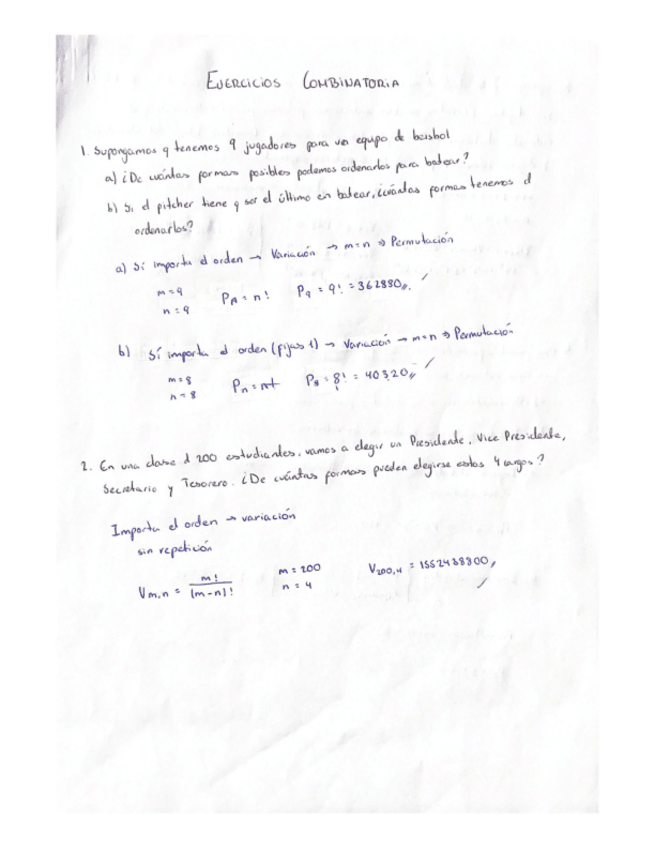 EJERCICIOS COMBINATORIA
1. Supongamos q tenemos 9 jugadores para un equipo de beisbol
a) ¿De cuántas formas posibles podemos ordenarlos para batear?
b) Si el pitcher tiene q ser el último en batear, ¿cuántas formas tenemos d
ordenarlos?
a) Sí importa el orden → Variación → m=n ⇒ Permutación
m=9
n=9
Pn = n! P9 = 9! = 362880
b) Sí importa el orden (fijas 1) → Variación → m=n ⇒ Permutación
m=8
n=8
Pn = n! P8 = 8! = 40320
2. En una clase d 200 estudiantes, vamos a elegir un Presidente, Vice Presidente,
Secretario y Tesorero. ¿De cuántas formas pueden elegirse estos 4 cargos?
Importa el orden → variación
sin repetición
Vm,n = m! / (m-n)!
m = 200
n = 4
V200,4 = 1552438800